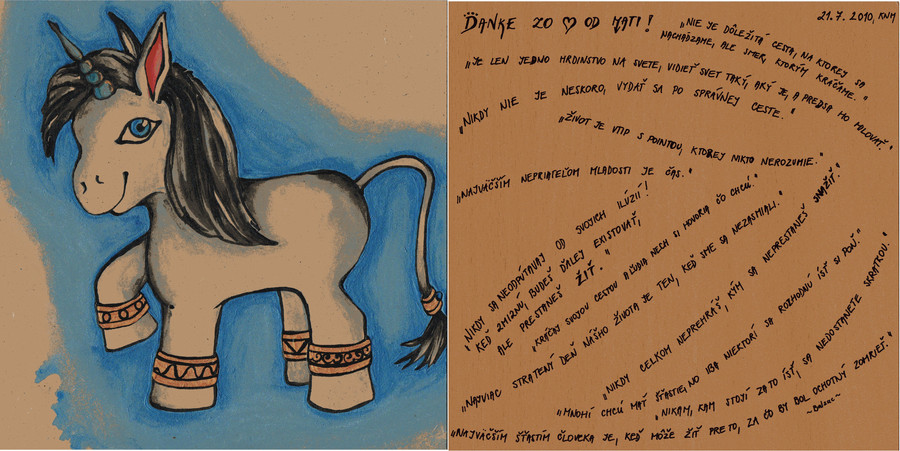 ĎANKE ZO ♡ OD MATI!
21.7. 2010, KNM
„NIE JE DÔLEŽITÁ CESTA, NA KTOREJ SA
NACHÁDZAME, ALE SMER, KTORÝM KRÁČAME.“
„JE LEN JEDNO HRDINSTVO NA SVETE, VIDIEŤ SVET TAKÝ, AKÝ JE, A PREDSA HO MILOVAŤ.“
„NIKDY NIE JE NESKORO, VYDAŤ SA PO SPRÁVNEJ CESTE.“
„ŽIVOT JE VTIP S POINTOU, KTOREJ NIKTO NEROZUMIE.“
„NAJVÄČŠÍM NEPRIATEĽOM MLADOSTI JE ČAS.“
„NIKDY SA NEODPÚTAVAJ OD SVOJICH ILÚZIÍ!
KEĎ ZMIZNÚ, BUDEŠ ĎALEJ EXISTOVAŤ,
ALE PRESTANEŠ ŽIŤ.“
„KRÁČAJ SVOJOU CESTOU A ĽUDIA NECH SI HOVORIA ČO CHCÚ.“
„NAJVIAC STRATENÝ DEŇ NÁŠHO ŽIVOTA JE TEN, KEĎ SME SA NEZASMIALI.“
„NIKDY CELKOM NEPREHRÁŠ, KÝM SA NEPRESTANEŠ SNAŽIŤ.“
„MNOHÍ CHCÚ MAŤ ŠŤASTIE, NO IBA NIEKTORÍ SA ROZHODNÚ ÍSŤ SI POŇ.“
„NIKAM, KAM STOJÍ ZA TO ÍSŤ, SA NEDOSTANETE SKRATKOU.“
„NAJVÄČŠÍM ŠŤASTÍM ČLOVEKA JE, KEĎ MÔŽE ŽIŤ PRE TO, ZA ČO BY BOL OCHOTNÝ ZOMRIEŤ.“
~Balzac~